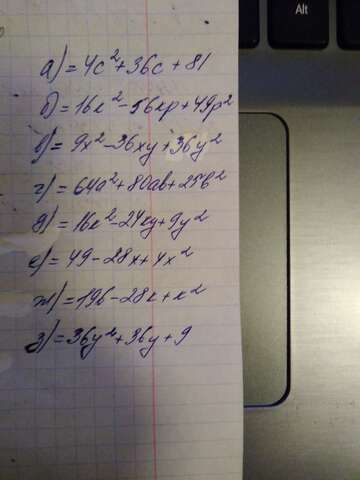 а) = 4c² + 36c + 81
б) = 16к² - 56кр + 49р²
в) = 9x² - 36xy + 36y²
г) = 64a² + 80ab + 25b²
д) = 16к² - 24кy + 9y²
е) = 49 - 28x + 4x²
ж) = 196 - 28к + к²
з) = 36y² + 36y + 9
Alt